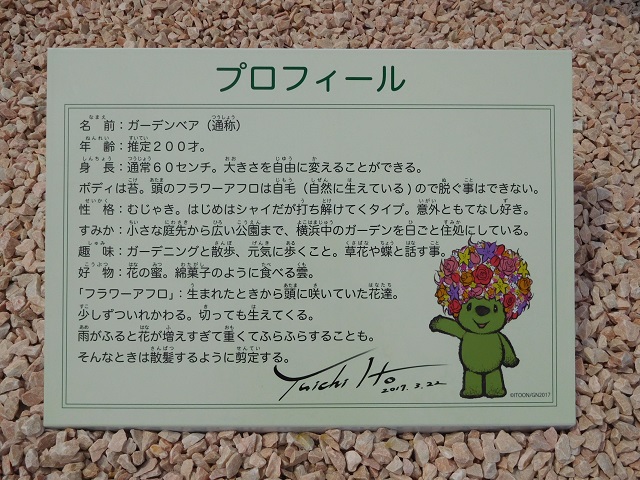 プロフィール
名　前：ガーデンベア（通称）
年　齢：推定２００才。
身　長：通常６０センチ。大きさを自由に変えることができる。
ボディは苔。頭のフラワーアフロは自毛（自然に生えている）ので脱ぐ事はできない。
性　格：むじゃき。はじめはシャイだが打ち解けてくタイプ。意外ともてなし好き。
すみか：小さな庭先から広い公園まで、横浜中のガーデンを日ごと住処にしている。
趣　味：ガーデニングと散歩、元気に歩くこと。草花や蝶と話す事。
好　物：花の蜜。綿菓子のように食べる雲。
「フラワーアフロ」：生まれたときから頭に咲いていた花達。
少しずついれかわる。切っても生えてくる。
雨がふると花が増えすぎて重くてふらふらすることも。
そんなときは散髪するように剪定する。
Yuichi Ito
2017.3.22
©ITOON/GN2017